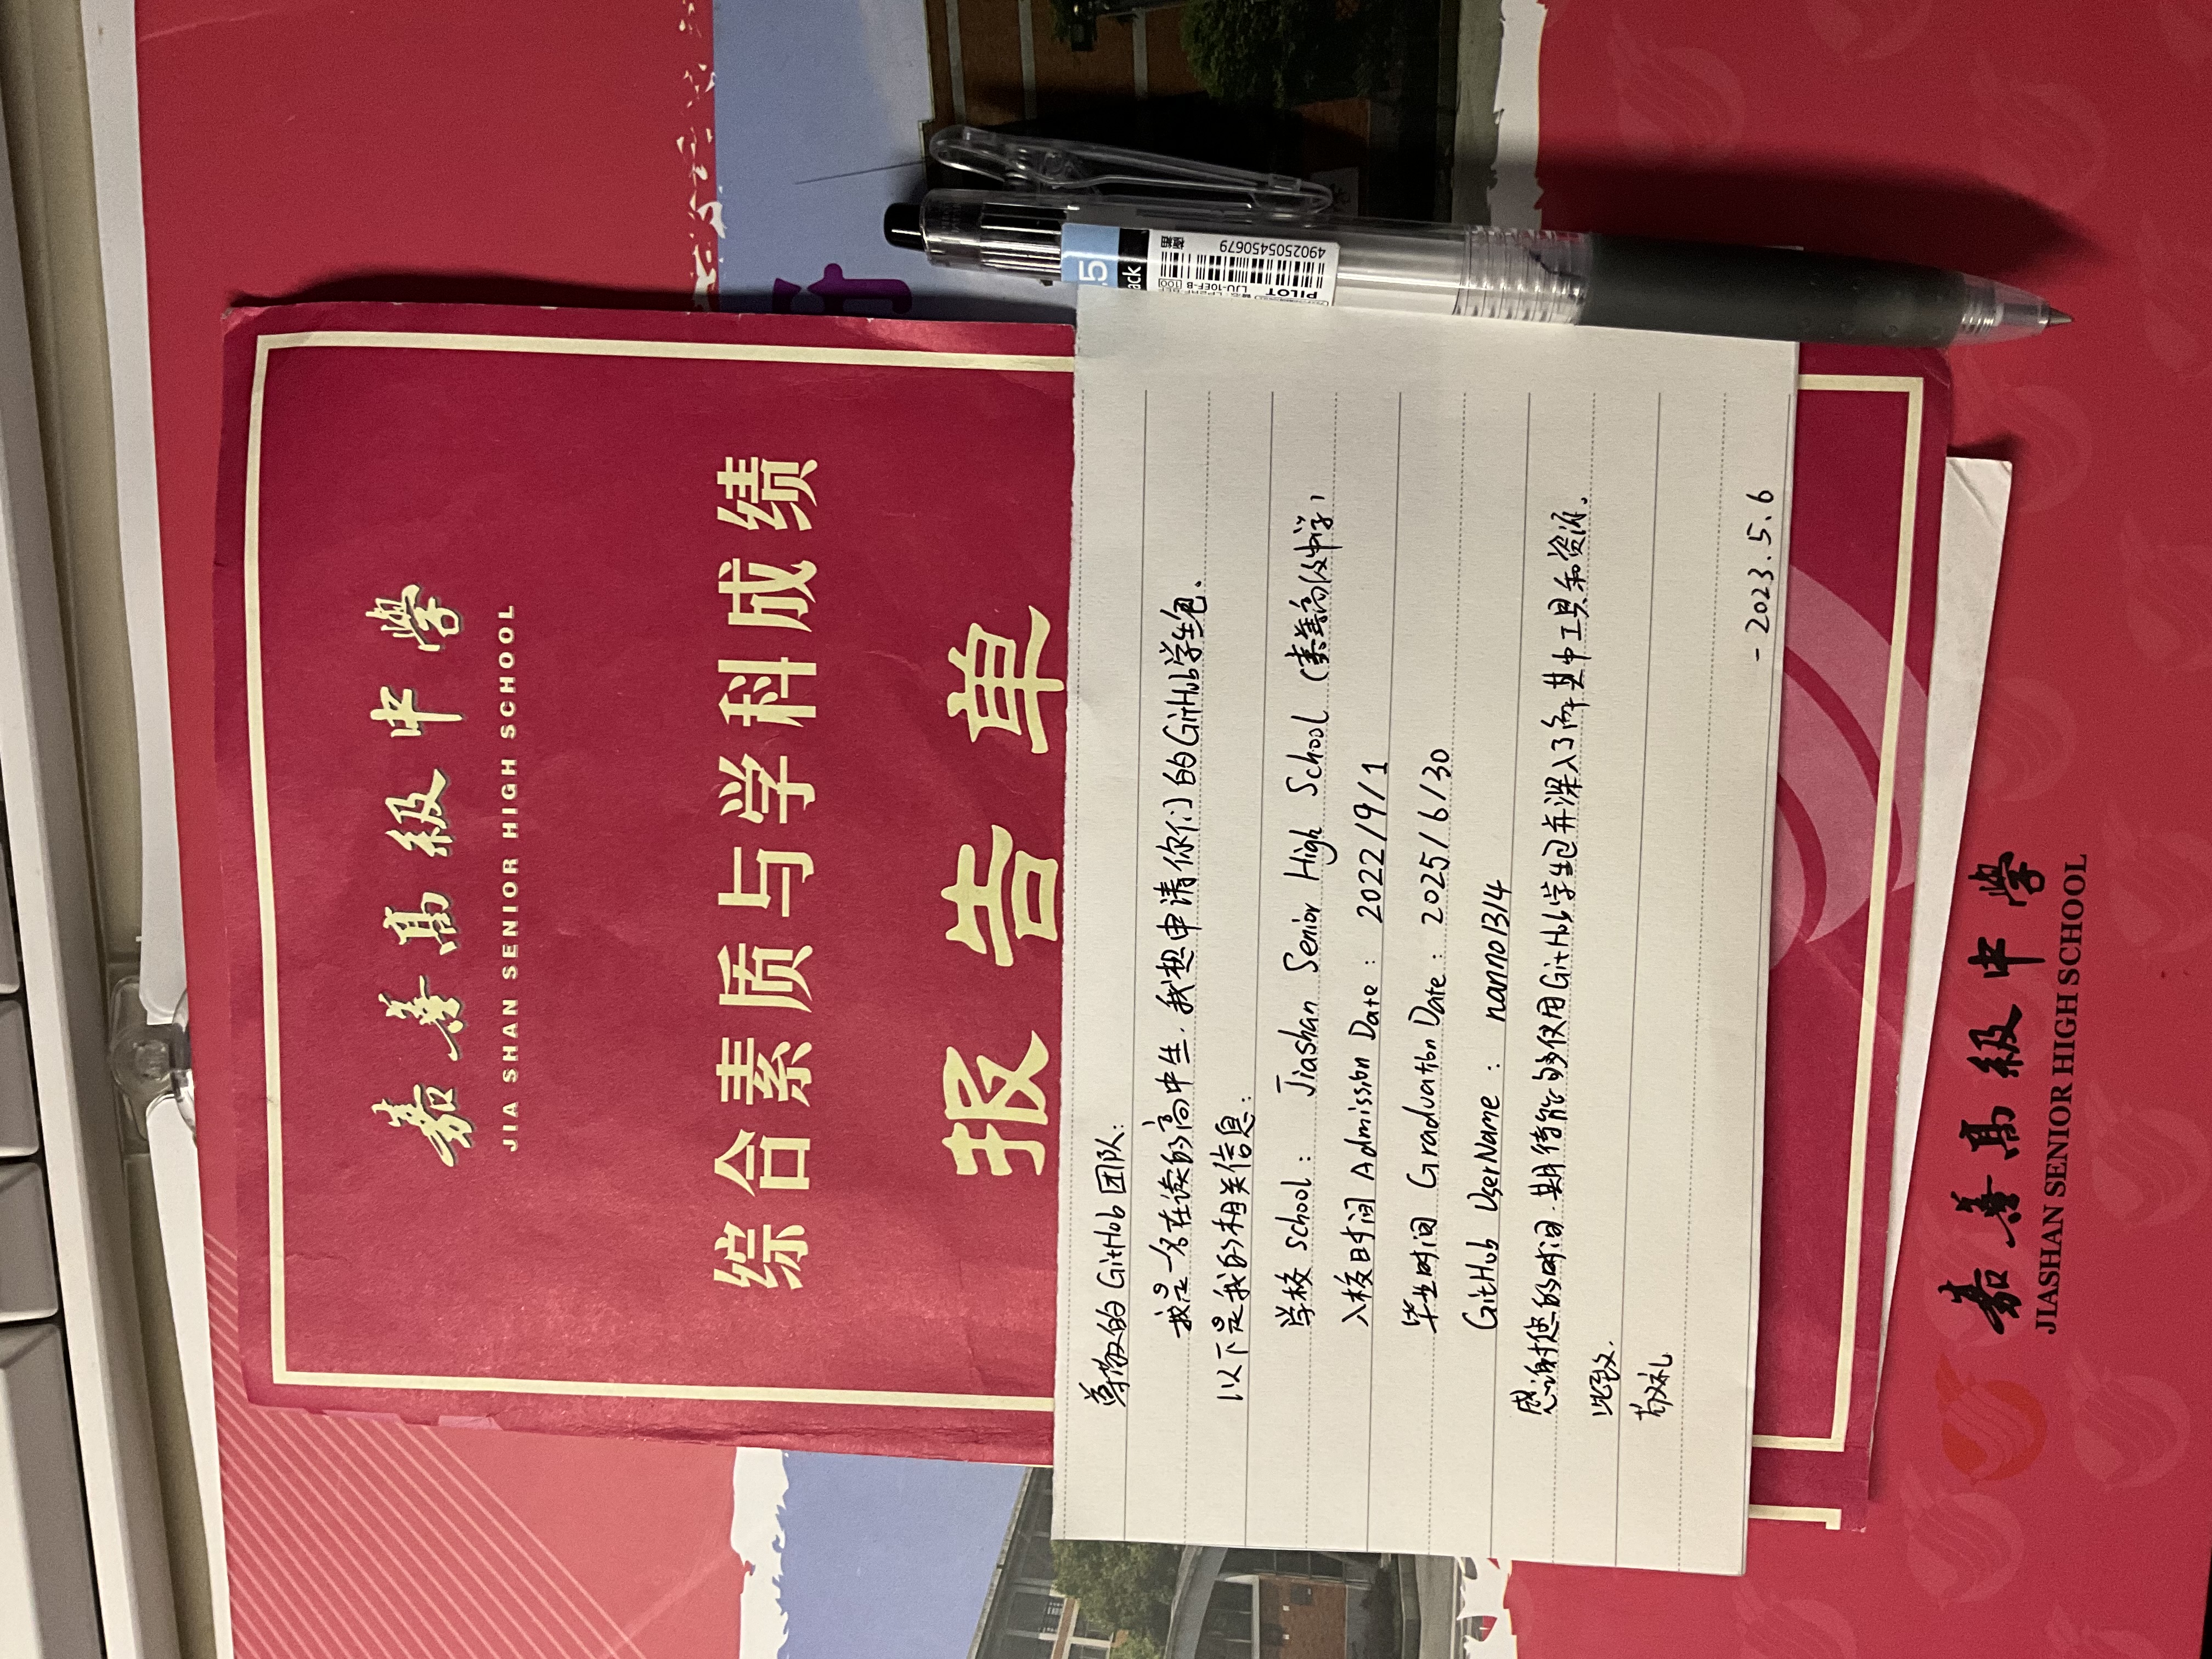 嘉善高級中學
JIA SHAN SENIOR HIGH SCHOOL
综合素质与学科成绩
报告单
尊敬的GitHub团队:
我是一名在读的高中生.我想申请你们的GitHub学生包.
以下是我的相关信息:
学校 school: Jiashan Senior High School (嘉善高级中学)
入校时间 Admission Date: 2022/9/1
毕业时间 Graduation Date: 2025/6/30
GitHub UserName: nanno1314
感谢您的时间.期待能够使用GitHub学生包并深入了解其中工具和资源。
此致.
敬礼
-2023.5.6
.5
ack
PILOT LJU-10EF-B
4902505450679
嘉善高級中學
JIASHAN SENIOR HIGH SCHOOL